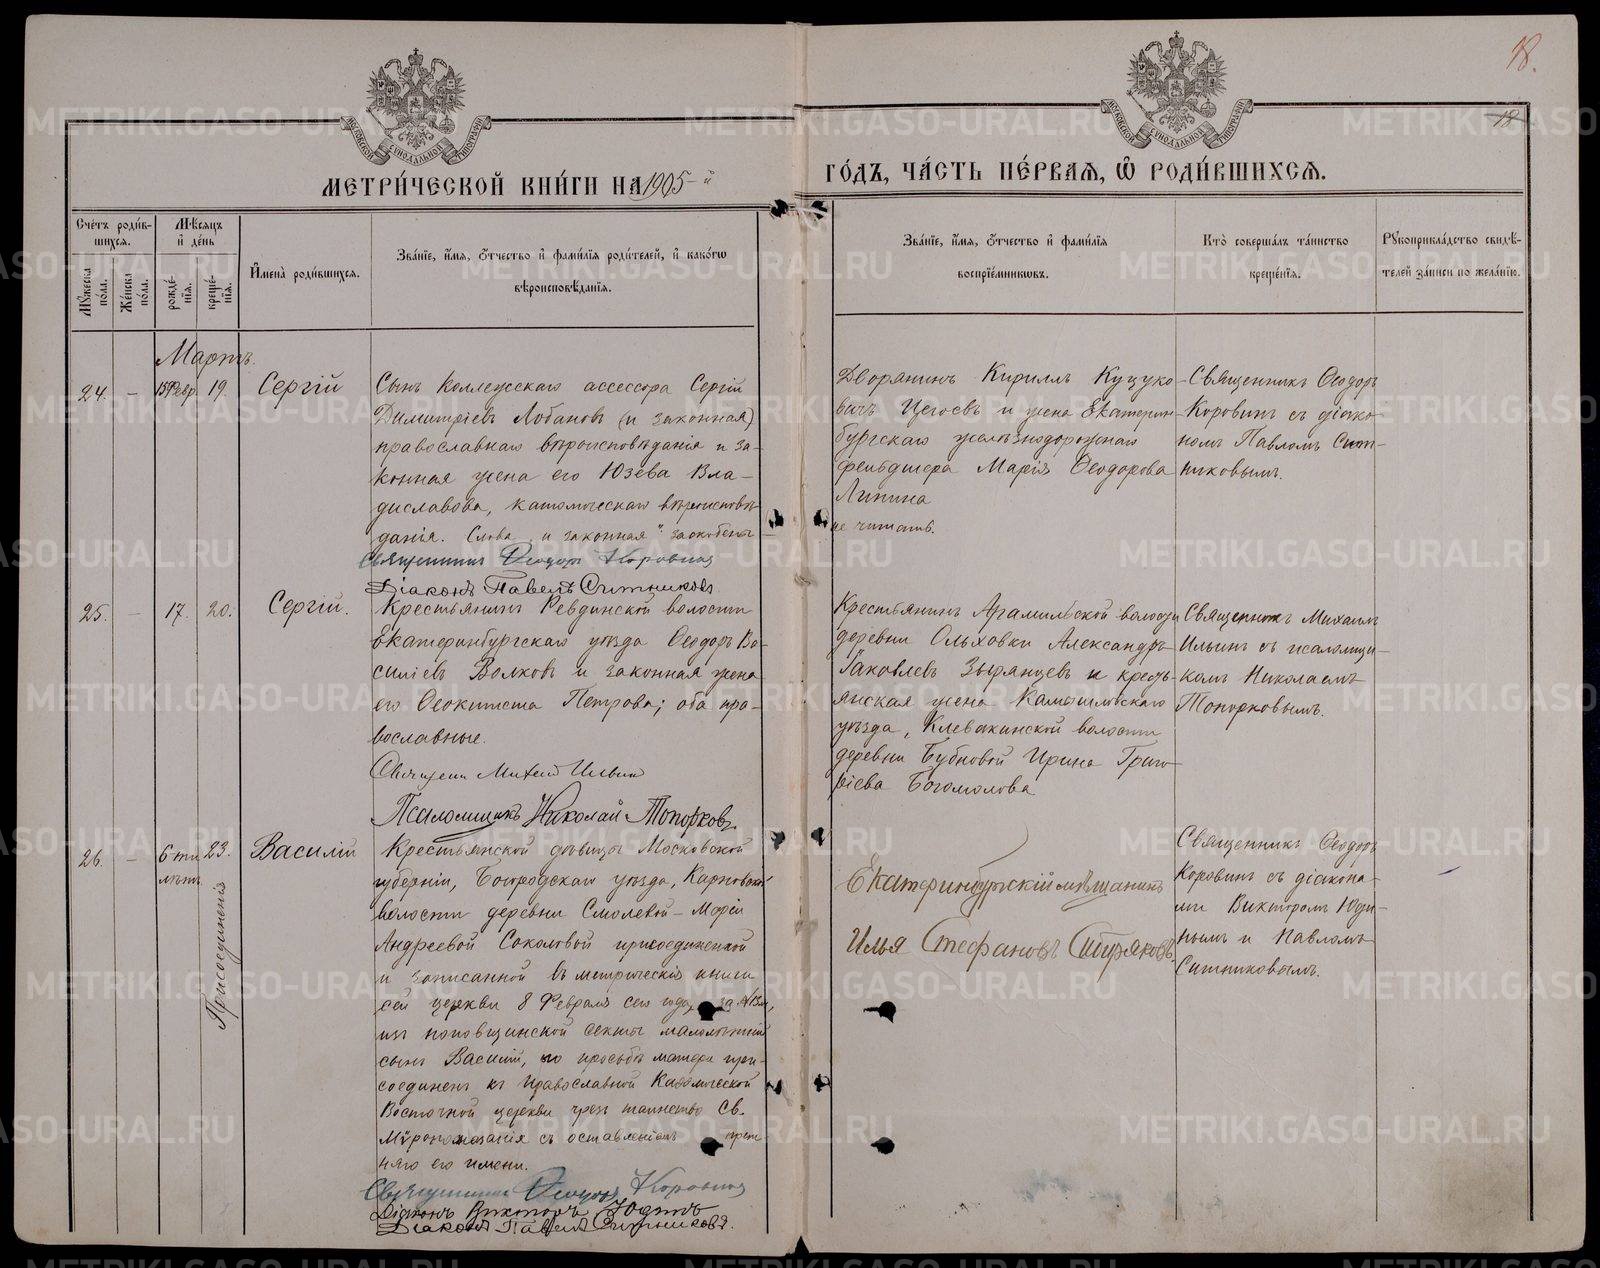 18.
18
МОСКОВСКОЙ СѴНОДАЛЬНОЙ ТИПОГРАФІИ
МОСКОВСКОЙ СѴНОДАЛЬНОЙ ТИПОГРАФІИ
МЕТРИ́ЧЕСКОЙ КНИ́ГИ НА 1905-й
ГО́ДЪ, ЧА́СТЬ ПЕ́РВАѦ, Ѽ РОДИ́ВШИХСѦ.
Сче́тъ роди́вшихсѧ.
Мꙋ́жеска по́ла.
Же́нска по́ла.
Мѣ́сѧцъ и҆ де́нь
рожде́нїѧ.
креще́нїѧ.
И҆мена̀ роди́вшихсѧ.
Зва́нїе, и҆́мѧ, ѻ҆́тчество и҆ фами́лїѧ роди́телей, и҆ како́гѡ
вѣроисповѣ́данїѧ.
Зва́нїе, и҆́мѧ, ѻ҆́тчество и҆ фами́лїѧ
воспрїе́мниковъ.
Кто̀ соверша́лъ та́инство
креще́нїѧ.
Рꙋкоприкла́дство свидѣ́-
телей за́писи по жела́нїю.
Мартъ.
24. – 15 Февр. 19. Сергій
Сынъ коллежскаго ассессора Сергій
Димитріевъ Лобановъ (и законная)
православнаго вѣроисповѣданія и за-
конная жена его Юзефа Вла-
диславова, католическаго вѣроисповѣ-
данія. Слова „и законная" заскоблены
Священникъ Ѳеодоръ Коровинъ
Діаконъ Павелъ Ситниковъ.
Дворянинъ Кириллъ
и жена Екатерин-
бургскаго желѣзнодорожнаго
фельдшера Марія Ѳеодорова
Липина
не читать.
Священникъ Ѳеодоръ
Коровинъ съ діако-
номъ Павломъ Сит-
никовымъ.
25. – 17. 20. Сергій.
Крестьянинъ Ревдинской волости
Екатеринбургскаго уѣзда Ѳеодоръ Ва-
силіевъ Волковъ и законная жена
его Ѳеоктиста Петрова; оба пра-
вославные.
Священн Михаил Ильин
Псаломщикъ Николай Топорковъ.
Крестьянинъ Арамильской волости
деревни Ольховки Александръ
Іаковлевъ Зырянцевъ и кресть-
янская жена Камышловскаго
уѣзда, Клевакинской волости
деревни Бубновой Ирина Григо-
ріева Богомолова
Священникъ Михаилъ
Ильинъ съ псаломщи-
комъ Николаемъ
Топорковымъ.
26. – 6ти лѣтъ 23. Василій
Присоединенія
Крестьянской дѣвицы Московской
губерніи, Богородскаго уѣзда, Карповской
волости деревни Смолевой – Маріи
Андреевой Соколовой присоединенной
и записанной въ метрической книгѣ
сей церкви 8 Февраля сего года за №
изъ поповщинской секты малолѣтній
сынъ Василій, по просьбѣ матери при-
соединенъ къ православной Каѳолической
Восточной церкви чрезъ таинство Св.
Мѵропомазанія съ оставленіемъ преж
няго его имени.
Священникъ Ѳеодоръ Коровинъ
Діаконъ Викторъ Юдинъ
Діаконъ Павелъ Ситниковъ.
Екатеринбургскій мѣщанинъ
Илья Стефановъ
Священникъ Ѳеодоръ
Коровинъ съ діакона-
ми Викторомъ Юди-
нымъ и Павломъ
Ситниковымъ.
METRIKI.GASO-URAL.RU